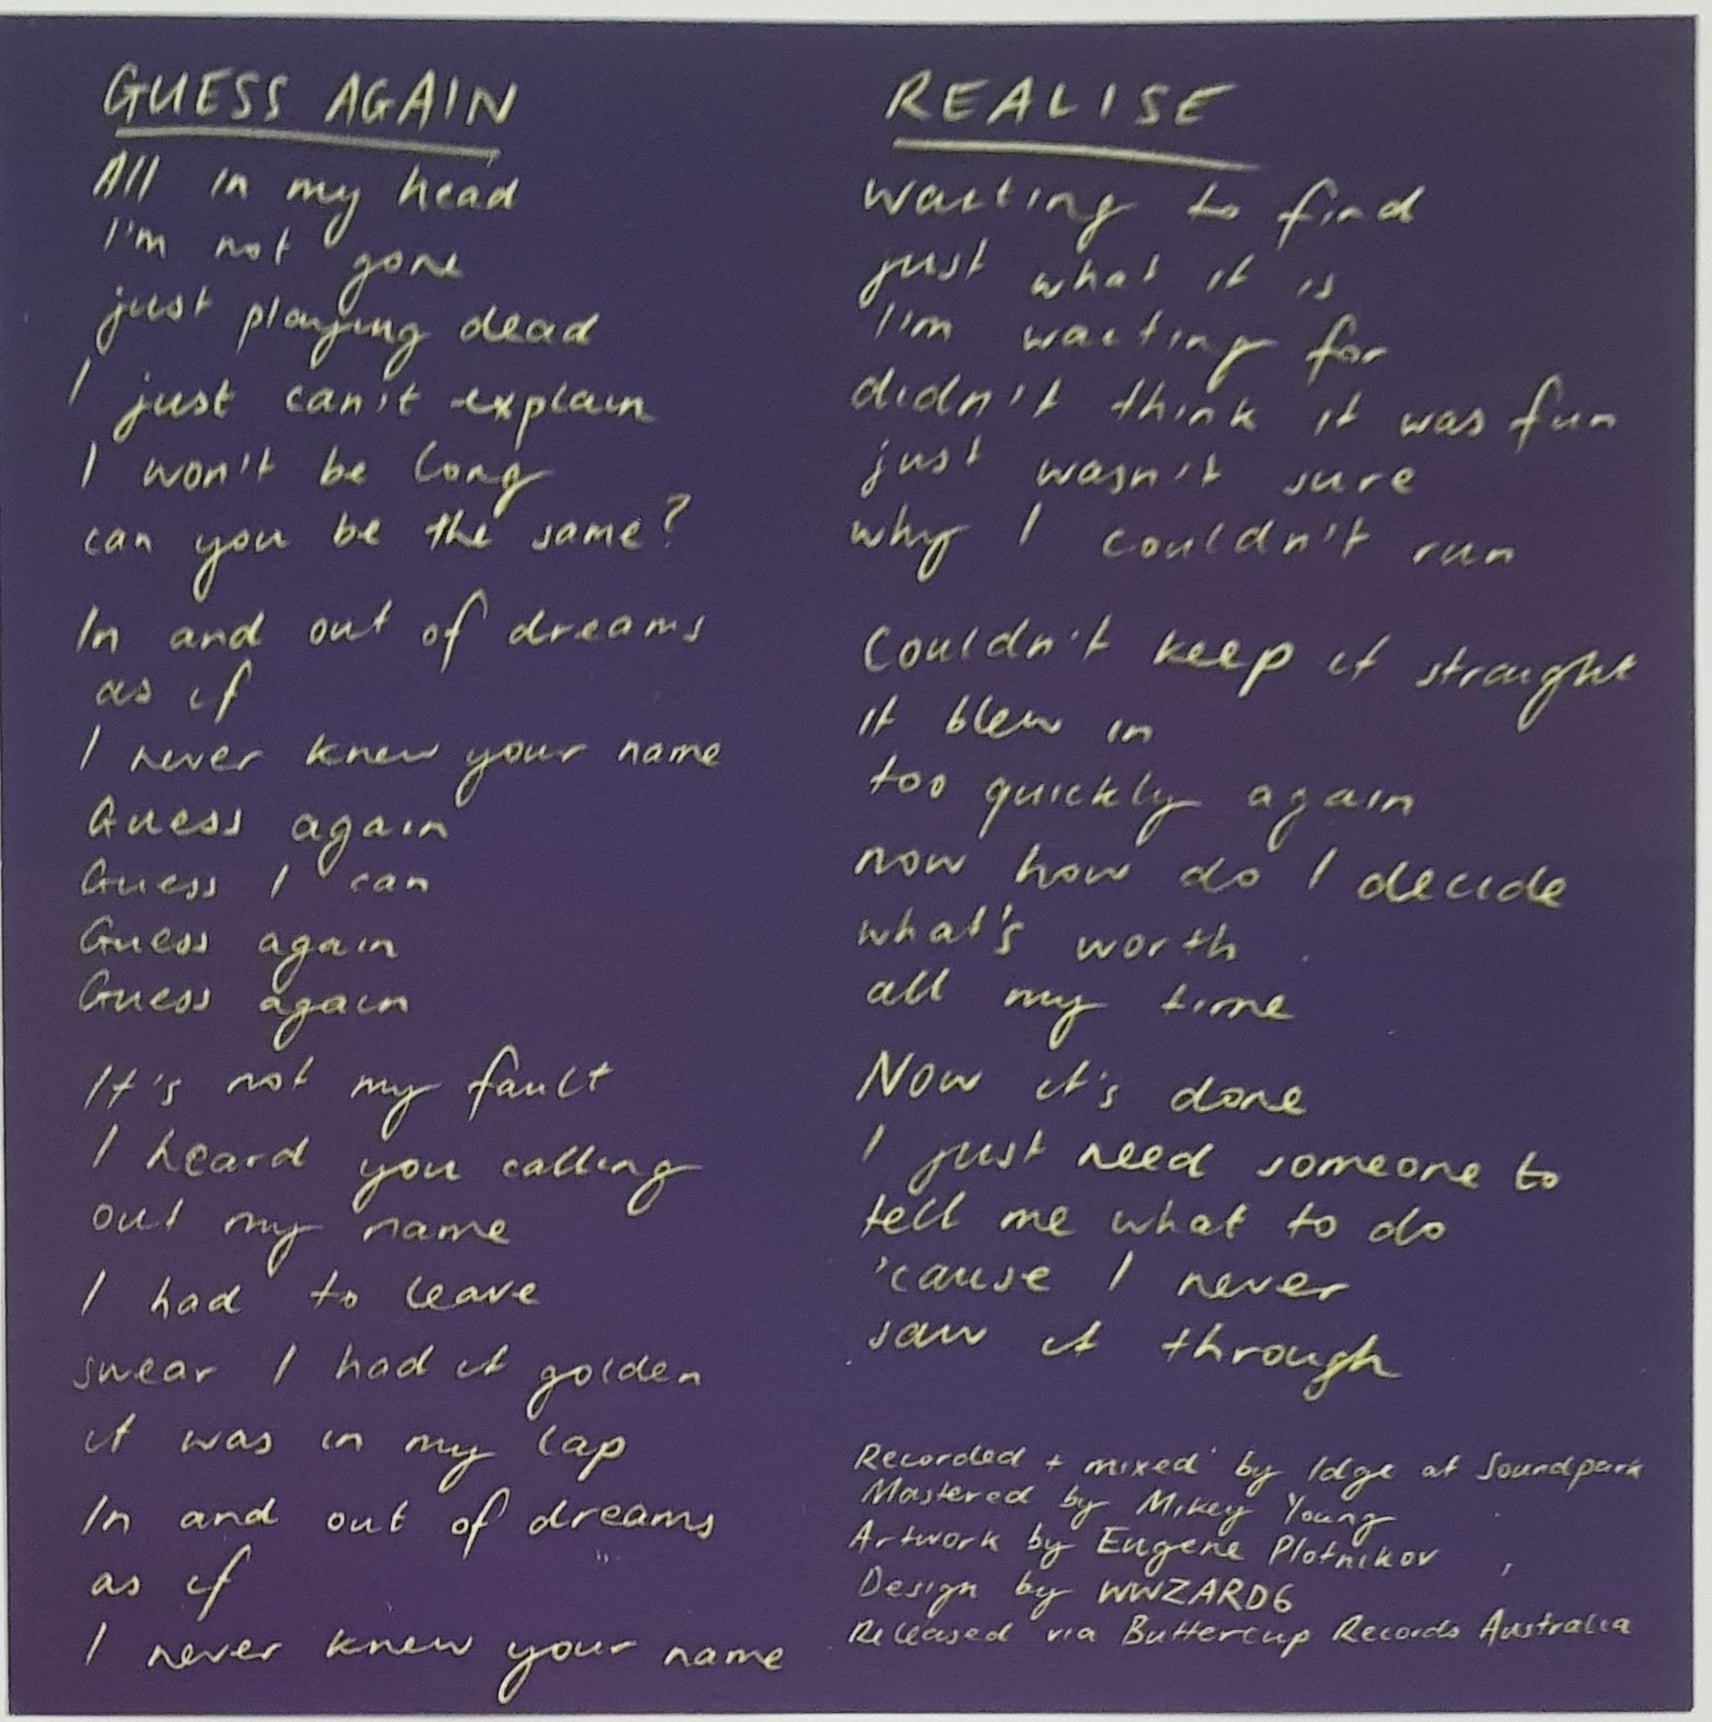 GUESS AGAIN
All in my head
I'm not gone
just playing dead
I just can't explain
I won't be long
can you be the same?
In and out of dreams
as if
I never knew your name
Guess again
Guess I can
Guess again
Guess again
It's not my fault
I heard you calling
out my name
I had to leave
swear I had it golden
it was in my lap
In and out of dreams
as if
I never knew your name
REALISE
waiting to find
just what it is
I'm waiting for
didn't think it was fun
just wasn't sure
why I couldn't run
Couldn't keep it straight
it blew in
too quickly again
now how do I decide
what's worth
all my time
Now it's done
I just need someone to
tell me what to do
'cause I never
saw it through
Recorded + mixed by Idge at Soundpark
Mastered by Mikey Young
Artwork by Eugene Plotnikov
Design by WWZARD6
Released via Buttercup Records Australia